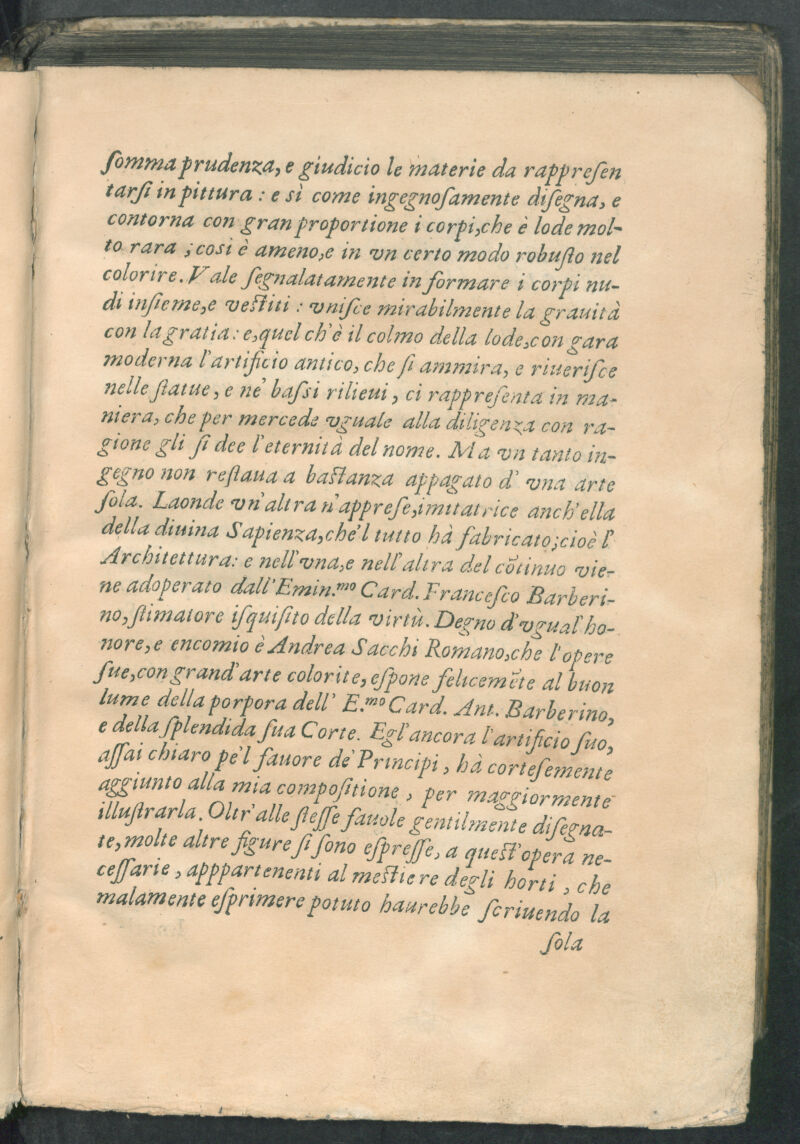 ſomma prudenza, e giudicio le materie da rappreſen
tarſi in pittura : e sì come ingegnoſamente diſegna, e
contorna con gran proportione i corpi,che è lode mol-
to rara ; così è ameno,e in vn certo modo robuſto nel
colorire. Vale ſegnalatamente in formare i corpi nu-
di inſieme,e veſtiti : vniſce mirabilmente la grauità
con la gratia: e,quel ch'è il colmo della lode,con gara
moderna l'artificio antico, che ſi ammira, e riueriſce
nelle ſtatue, e ne' baſsi rilieui, ci rappreſenta in ma-
niera, che per mercede vguale alla diligenza con ra-
gione gli ſi dee l'eternità del nome. Ma vn tanto in-
gegno non reſtaua a baſtanza appagato d' vna arte
ſola. Laonde vn'altra n'appreſe,imitatrice anch'ella
della diuina Sapienza,che'l tutto hà fabricato;cioè l'
Architettura: e nell'vna,e nell'altra del cõtinuo vie-
ne adoperato dall'Emin.mo Card. Franceſco Barberi-
no,ſtimatore iſquiſito della virtù. Degno d'vgual'ho-
nore,e encomio è Andrea Sacchi Romano,che l'opere
ſue,con grand'arte colorite, eſpone felicemẽte al buon
lume della porpora dell' E.mo Card. Ant. Barberino,
e della ſplendida ſua Corte. Egl'ancora l'artificio ſuo,
aſſai chiaro pe'l fauore de' Principi, hà corteſemente
aggiunto alla mia compoſitione , per maggiormente
illuſtrarla. Oltr'alle ſteſſe fauole gentilmente diſegna-
te, molte altre figure ſi ſono eſpreſſe, a queſt'opera ne-
ceſſarie , apppartenenti al meſtiere degli horti , che
malamente eſprimere potuto haurebbe ſcriuendo la
ſola